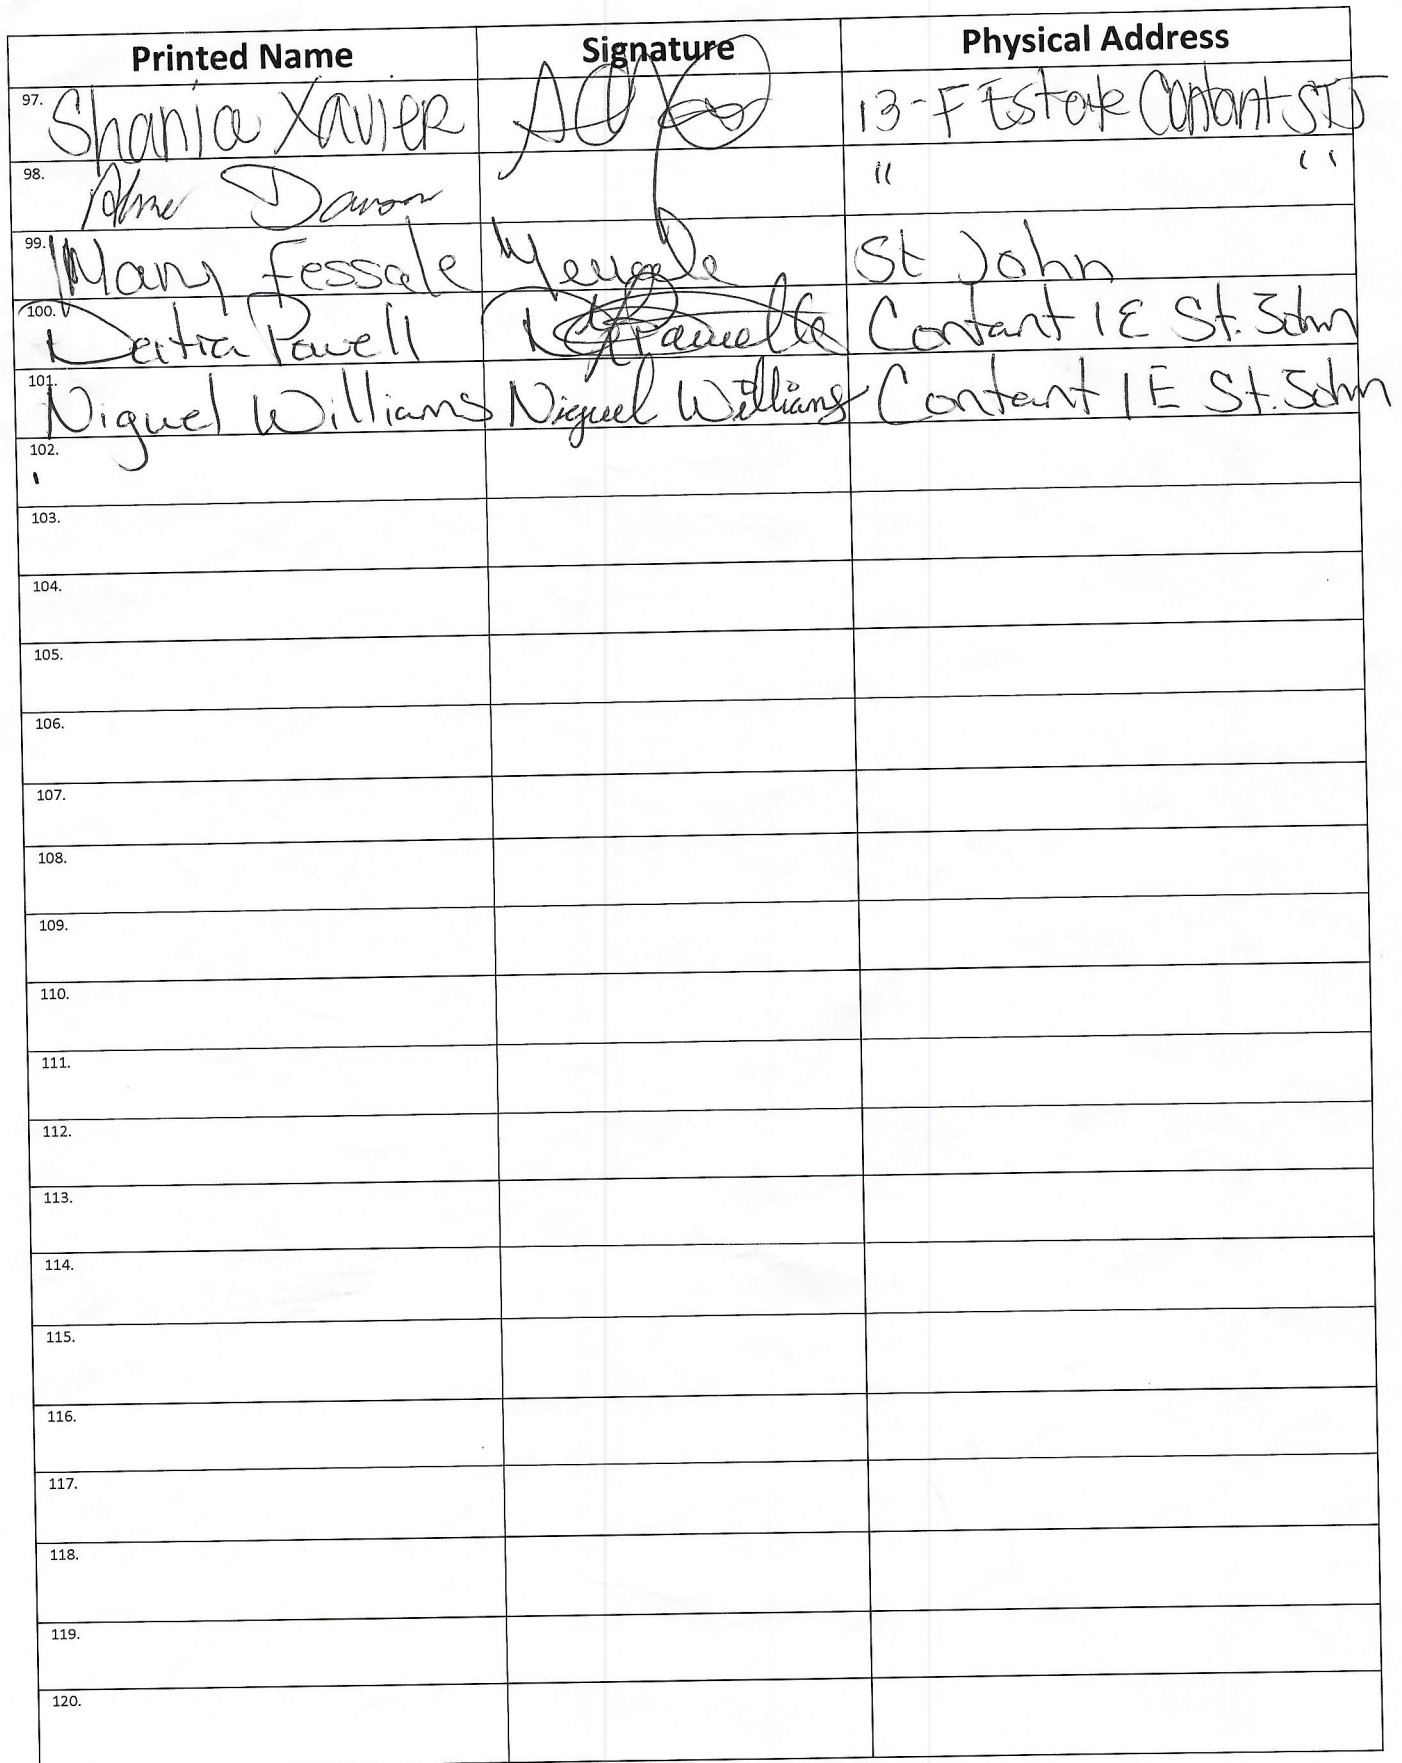 Printed Name Signature Physical Address
97. Shania Xavier 13-F Estate Contant STJ
98. " "
99. Mary Fessale St John
100. Powell Contant 1E St. John
101. Niguel Williams Niguel Williams Contant 1E St. John
102.
103.
104.
105.
106.
107.
108.
109.
110.
111.
112.
113.
114.
115.
116.
117.
118.
119.
120.